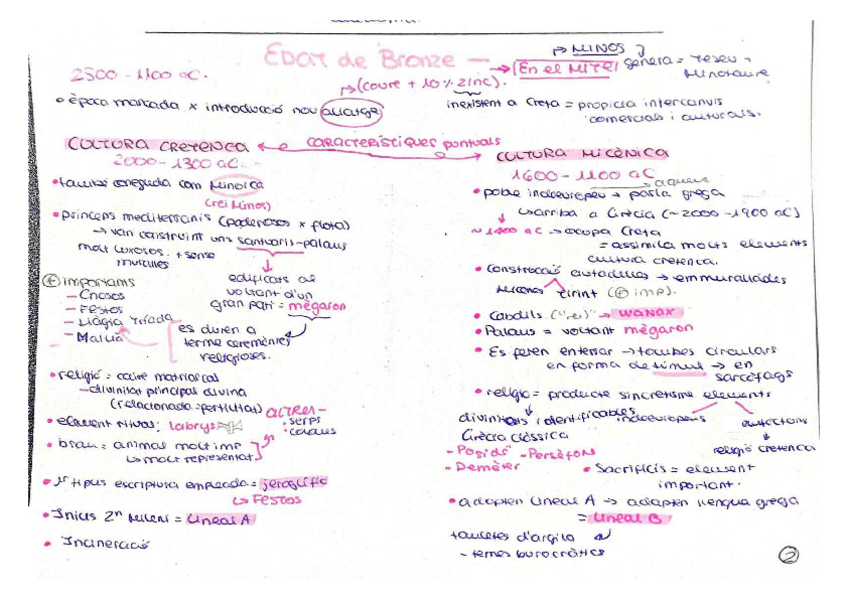 EDAT de BRONZE
MINOS
[En el MITE]
genera = Teseu +
Minotaure
2500 - 1100 aC.
(coure + 10% zinc).
• època marcada x introducció nou aliatge
inexistent a Creta = propicia intercanvis
comercials i culturals.
CARACTERÍSTIQUES puntuals
CULTURA CRETENCA
2000 - 1300 aC.
• també coneguda com Minoica
(rei Minos)
• prínceps mediterranis (poderosos x flota)
→ van construint uns santuaris-palaus
molt luxosos. + sense
muralles
edificats al
voltant d'un
gran pati = mègaron
⊕ importants
- Cnosos
- Festos
- Hàgia Tríada
- Màlia
es duien a
terme cerimònies
religioses.
• religió = caire matriarcal
- divinitat principal divina
(relacionada = fertilitat)
• element ritual: labrys
ALTRES -
. serps
. coloms
• brau = animal molt imp
↳ molt representat
• 1r tipus escriptura empleada = jeroglífic
↳ Festos
• Inicis 2n mil·leni = Lineal A
• Incineració
CULTURA MICÈNICA
1600 - 1100 aC
aqueu
• poble indoeuropeu → parla grega
↳ arriba a Grècia (~2000 - 1900 aC)
→ ocupa Creta
= assimila molts elements
cultura cretenca.
• Construcció ciutadelles → emmurallades
Micenes Tirint (⊕ imp.)
• Cabdills ("rei") → wanax
• Palaus = voltant mègaron
• Es feien enterrar → tombes circulars
en forma de túmul → en
sarcòfags
• religió = producte sincretisme elements
indoeuropeus autòctons
↓
religió cretenca
divinitats identificables
Grècia Clàssica
- Posidó - Persèfone
- Demèter
• Sacrificis = element
important.
• adopten Lineal A → adapten llengua grega
= Lineal B
tauletes d'argila
- temes burocràtics
2